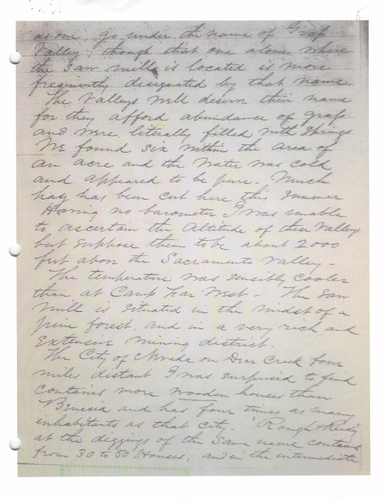 as one go under the name of Graf
Valley: though that one alone where
the Saw mill is located is more
frequently designated by that name
The Valleys well deserve their name
for they afford abundance of graf
and were literally filled with Springs
We found six within the area of
an acre and the water was cold
and appeared to be pure. Much
hay has been cut here this Summer
Having no barometer I was unable
to ascertain the Altitude of these Valleys
but suppose them to be about 2000
feet above the Sacramento Valley -
The temperature was sensibly cooler
than at Camp Far West - The Saw
mill is situated in the midst of a
pine forest, and in a very rich and
Extensive mining district.
The City of Nevada on Deer Creek four
miles distant I was surprised to find
contains more wooden houses than
Benecia and has four times as many
inhabitants as that City. Rough & Ready
at the diggings of the same name contains
from 30 to 50 Houses; and in the intermediate